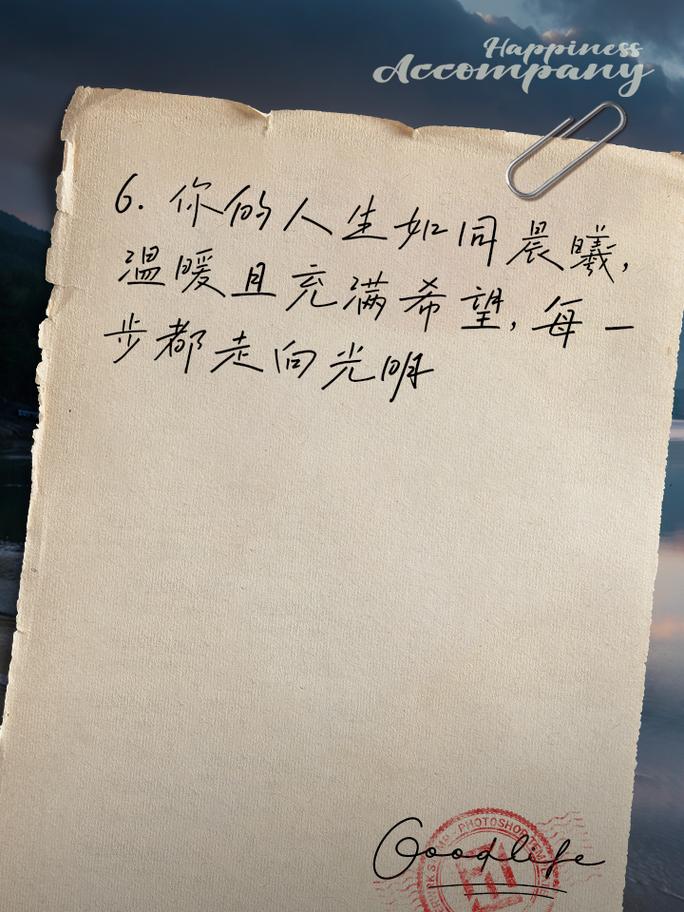 Happiness
Accompany
6. 你的人生如同晨曦,
温暖且充满希望,每一
步都走向光明
PHOTOSHOP
Goodlife